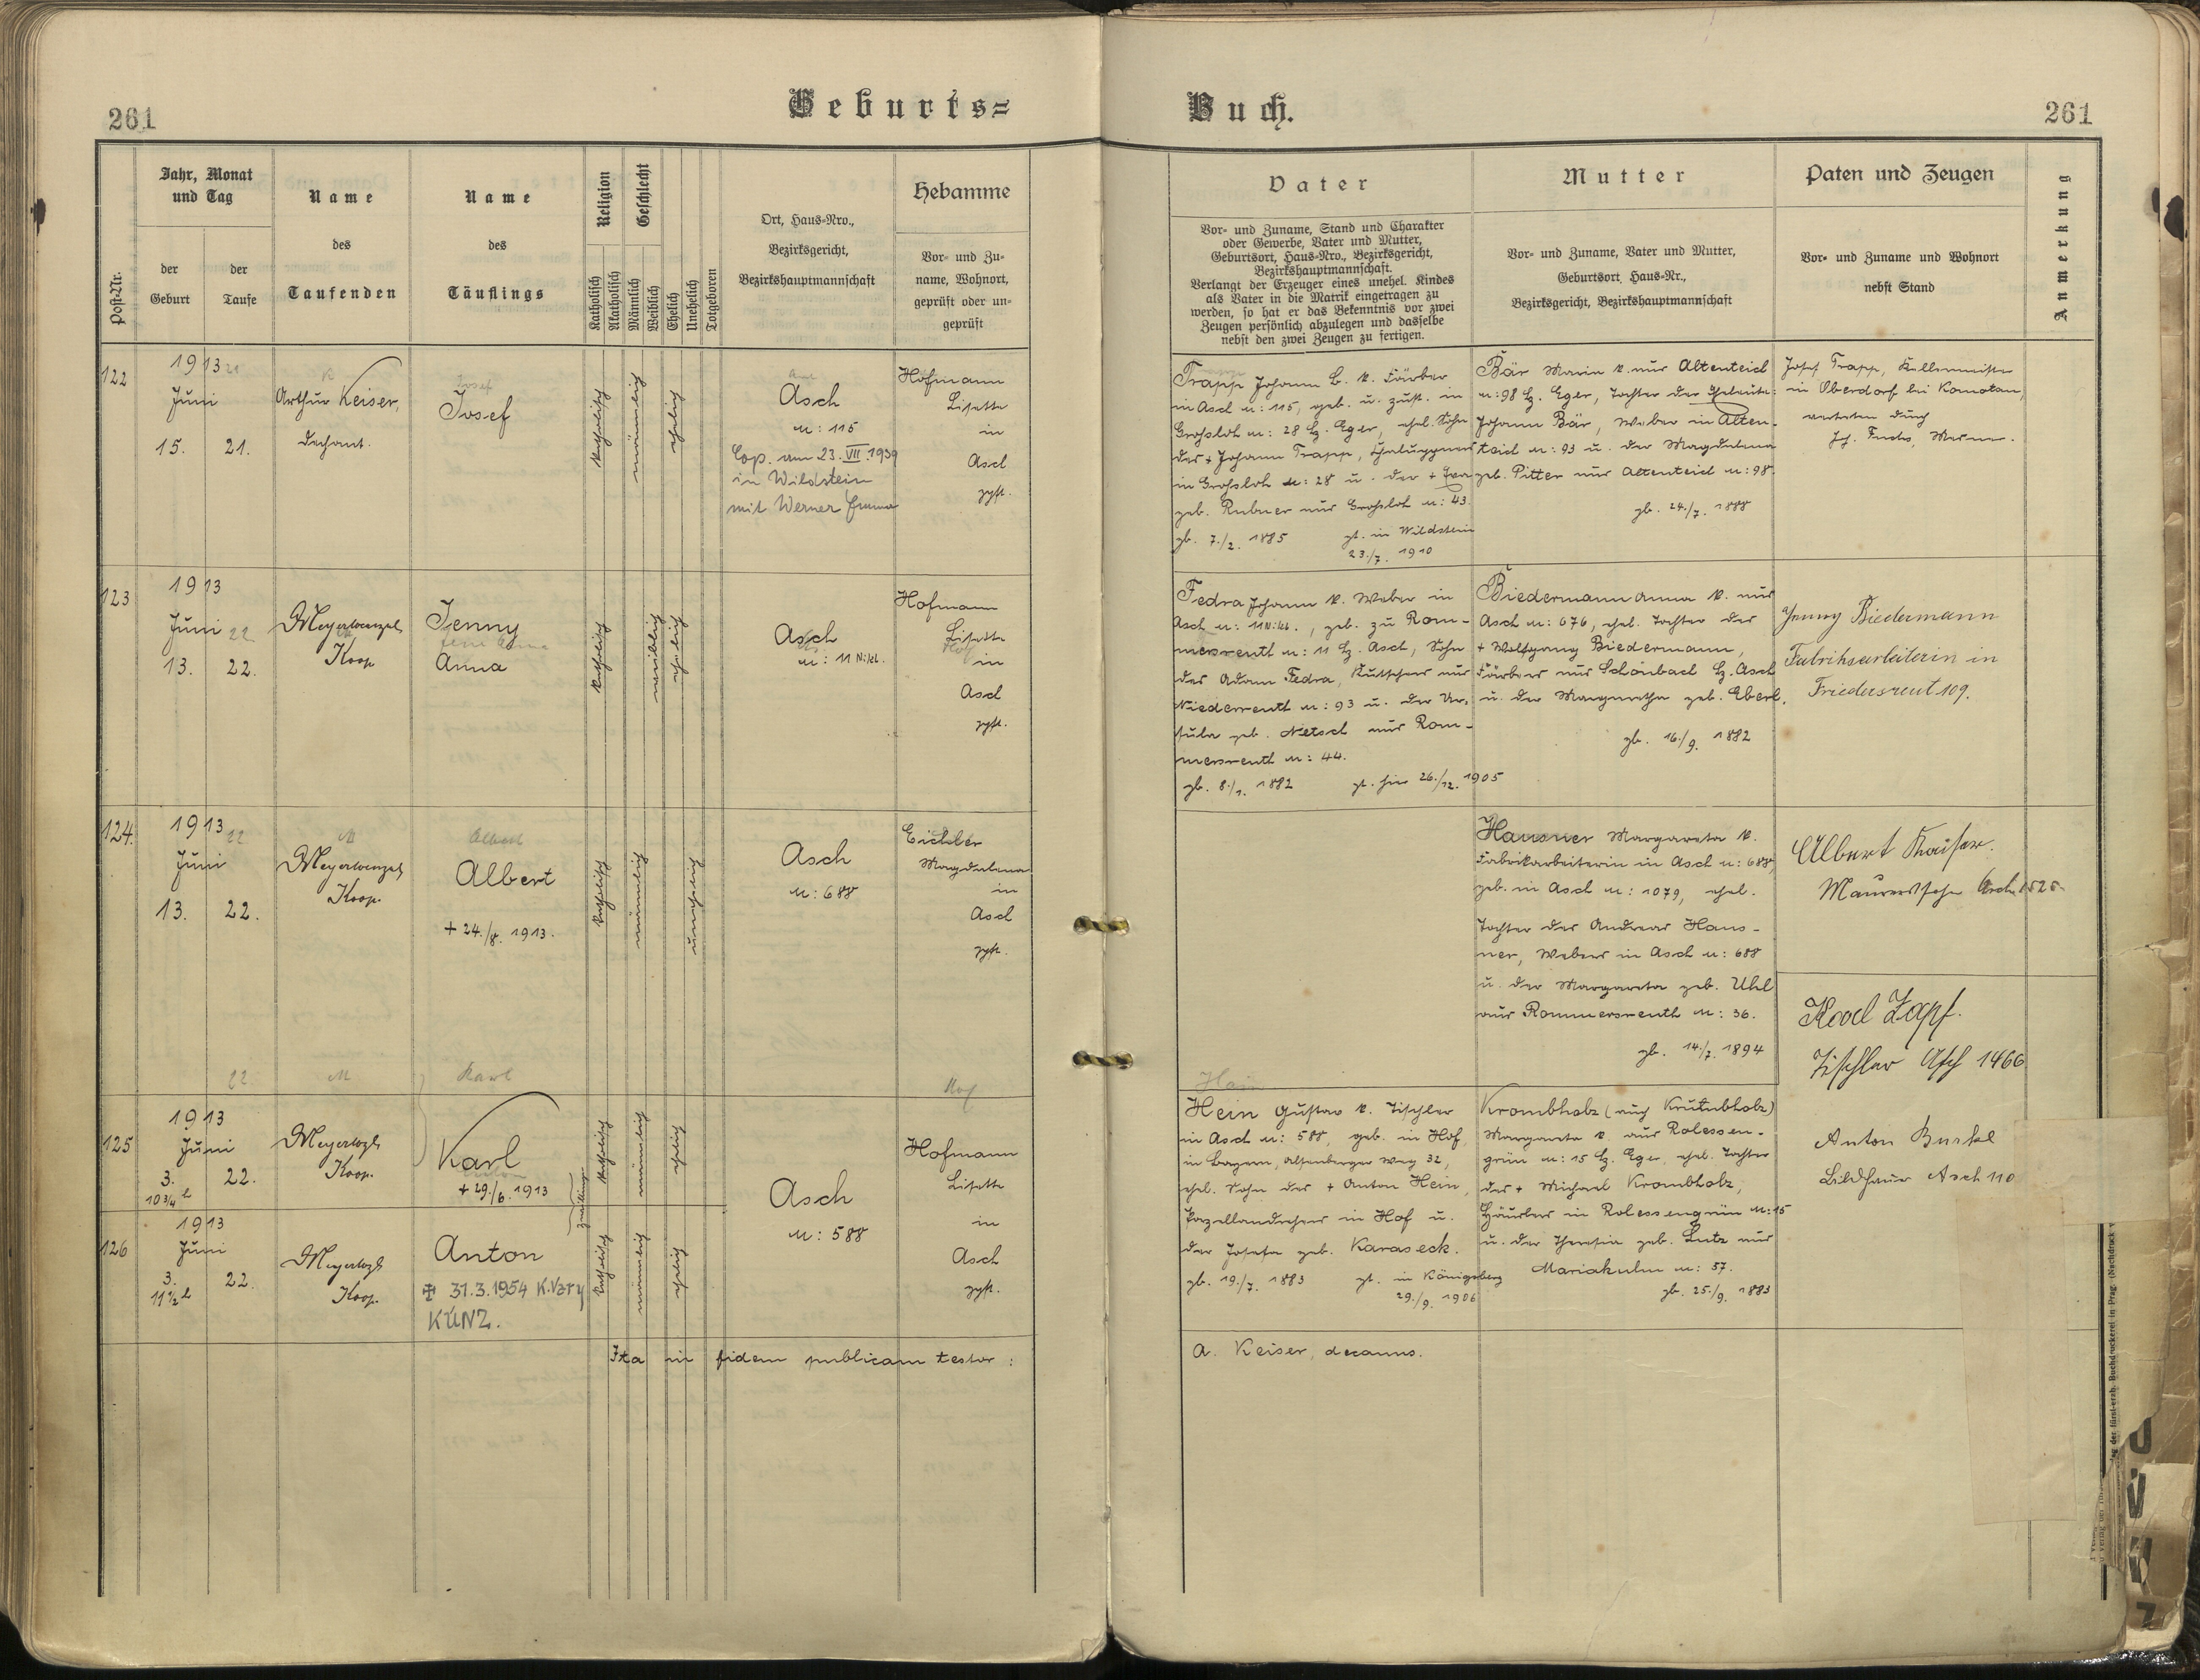 261
Geburts=
Jahr, Monat
und Tag
Name
Name
Religion
Geschlecht
Hebamme
Post-Nr.
der
Geburt
der
Taufe
des
Taufenden
des
Täuflings
Katholisch
Akatholisch
Männlich
Weiblich
Ehelich
Unehelich
Totgeboren
Ort, Haus=Nro.,
Bezirksgericht,
Bezirkshauptmannschaft
Vor= und Zu=
name, Wohnort,
geprüft oder un=
geprüft
122
1913
Juni
15. 21.
Arthur Keiser,
Dechant.
Josef
Josef
katholisch
männlich
ehelich
Asch
N: 115
Cop. am 23.VII.1939
in Wildstein
mit Werner Emma
Hofmann
Lisette
in
Asch
gepft.
123
1913
Juni 22
13. 22.
Meyerwenzel
Koop
Jenny
Anna
katholisch
weiblich
ehelich
Asch
N: 11 Nikl.
Hofmann
Lisette
in
Asch
gepft.
124.
1913 22
Juni
13. 22.
M
Meyerwenzel
Koop.
Albert
Albert
+ 24./8. 1913.
katholisch
männlich
unehelich
Asch
N: 688
Eichler
Magdalena
in
Asch
gepft.
125
22
1913
Juni
3. 22.
10 3/4 h
M
Meyerwzl
Koop.
Karl
Karl
+ 29./6. 1913
Zwillinge
katholisch
männlich
ehelich
Asch
N: 588
Hof
Hofmann
Lisette
in
Asch
gepft.
126
1913
Juni
3. 22.
11 1/2 h
Meyerwzl
Koop.
Anton
31.3.1954 K.Vary
KUNZ.
katholisch
männlich
ehelich
Ita in fidem publicam testor:
Buch.
261
Vater
Mutter
Paten und Zeugen
Anmerkung
Vor= und Zuname, Stand und Charakter
oder Gewerbe, Vater und Mutter,
Geburtsort, Haus=Nro., Bezirksgericht,
Bezirkshauptmannschaft.
Verlangt der Erzeuger eines unehel. Kindes
als Vater in die Matrik eingetragen zu
werden, so hat er das Bekenntnis vor zwei
Zeugen persönlich abzulegen und dasselbe
nebst den zwei Zeugen zu fertigen.
Vor= und Zuname, Vater und Mutter,
Geburtsort, Haus=Nr.,
Bezirksgericht, Bezirkshauptmannschaft
Vor= und Zuname und Wohnort
nebst Stand
Trapp Johann B. k. Färber
in Asch N: 115, geb. u. zust. in
Grossloh N: 28 Bz. Eger, ehel. Sohn
des + Johann Trapp, Chaluppners
in Grossloh N: 28 u. der + Eva
geb. Rubner aus Grossloh N: 43.
gb. 7./2. 1885 gt. in Wildstein
23./7. 1910
Bär Maria k. aus Altenteich
N: 98 Bz. Eger, Tochter der Eheleute:
Johann Bär, Weber in Alten-
teich N: 93 u. der Magdalena
geb. Pitter aus Altenteich N: 98.
gb. 24./7. 1888
Josef Trapp,
in Oberdorf bei Komotau,
vertreten durch
Joh. Fuchs, Mesner.
Fedra Johann k. Weber in
Asch N: 11 Nikl., geb. zu Rom-
mersreuth N: 11 Bz. Asch, Sohn
des Adam Fedra, Kutschers aus
Niederreuth N: 93 u. der Ur-
sula geb. Netsch aus Rom-
mersreuth N: 44.
gb. 8./1. 1882 gt. hier 26./12. 1905
Biedermann Anna k. aus
Asch N: 676, ehel. Tochter des
+ Wolfgang Biedermann,
Färbers aus Schönbach Bz. Asch
u. der Margaretha geb. Eberl.
gb. 16./9. 1882
Jenny Biedermann
Fabriksarbeiterin in
Friedersreut 109.
Hausner Margareta k.
Fabrikarbeiterin in Asch N: 688,
geb. in Asch N: 1079, ehel.
Tochter des Andreas Haus-
ner, Webers in Asch N: 688
u. der Margareta geb. Uhl
aus Rommersreuth N: 36.
gb. 14./7. 1894
Albert Kaiser.
Maurerssohn Asch 1525.
Karl Zapf.
Tischler Asch 1466
Hein
Hein Gustav k. Tischler
in Asch N: 588, geb. in Hof
in Bayern, Altenberger Weg 32,
ehel. Sohn des + Anton Hein,
Porzellandrehers in Hof u.
der Josefa geb. Karaseck.
gb. 19./7. 1883 gt. in Königsberg
29./9. 1906
Krombholz (auch Krumbholz)
Margareta k. aus Rolessen-
grün N: 15 Bz. Eger, ehel. Tochter
des + Michael Krombholz,
Häuslers in Rolessengrün N: 15
u. der Theresia geb. Lutz aus
Mariakulm N: 57.
gb. 25./9. 1883
Anton Burkl
Bildhauer Asch 110
A. Keiser, decanus.